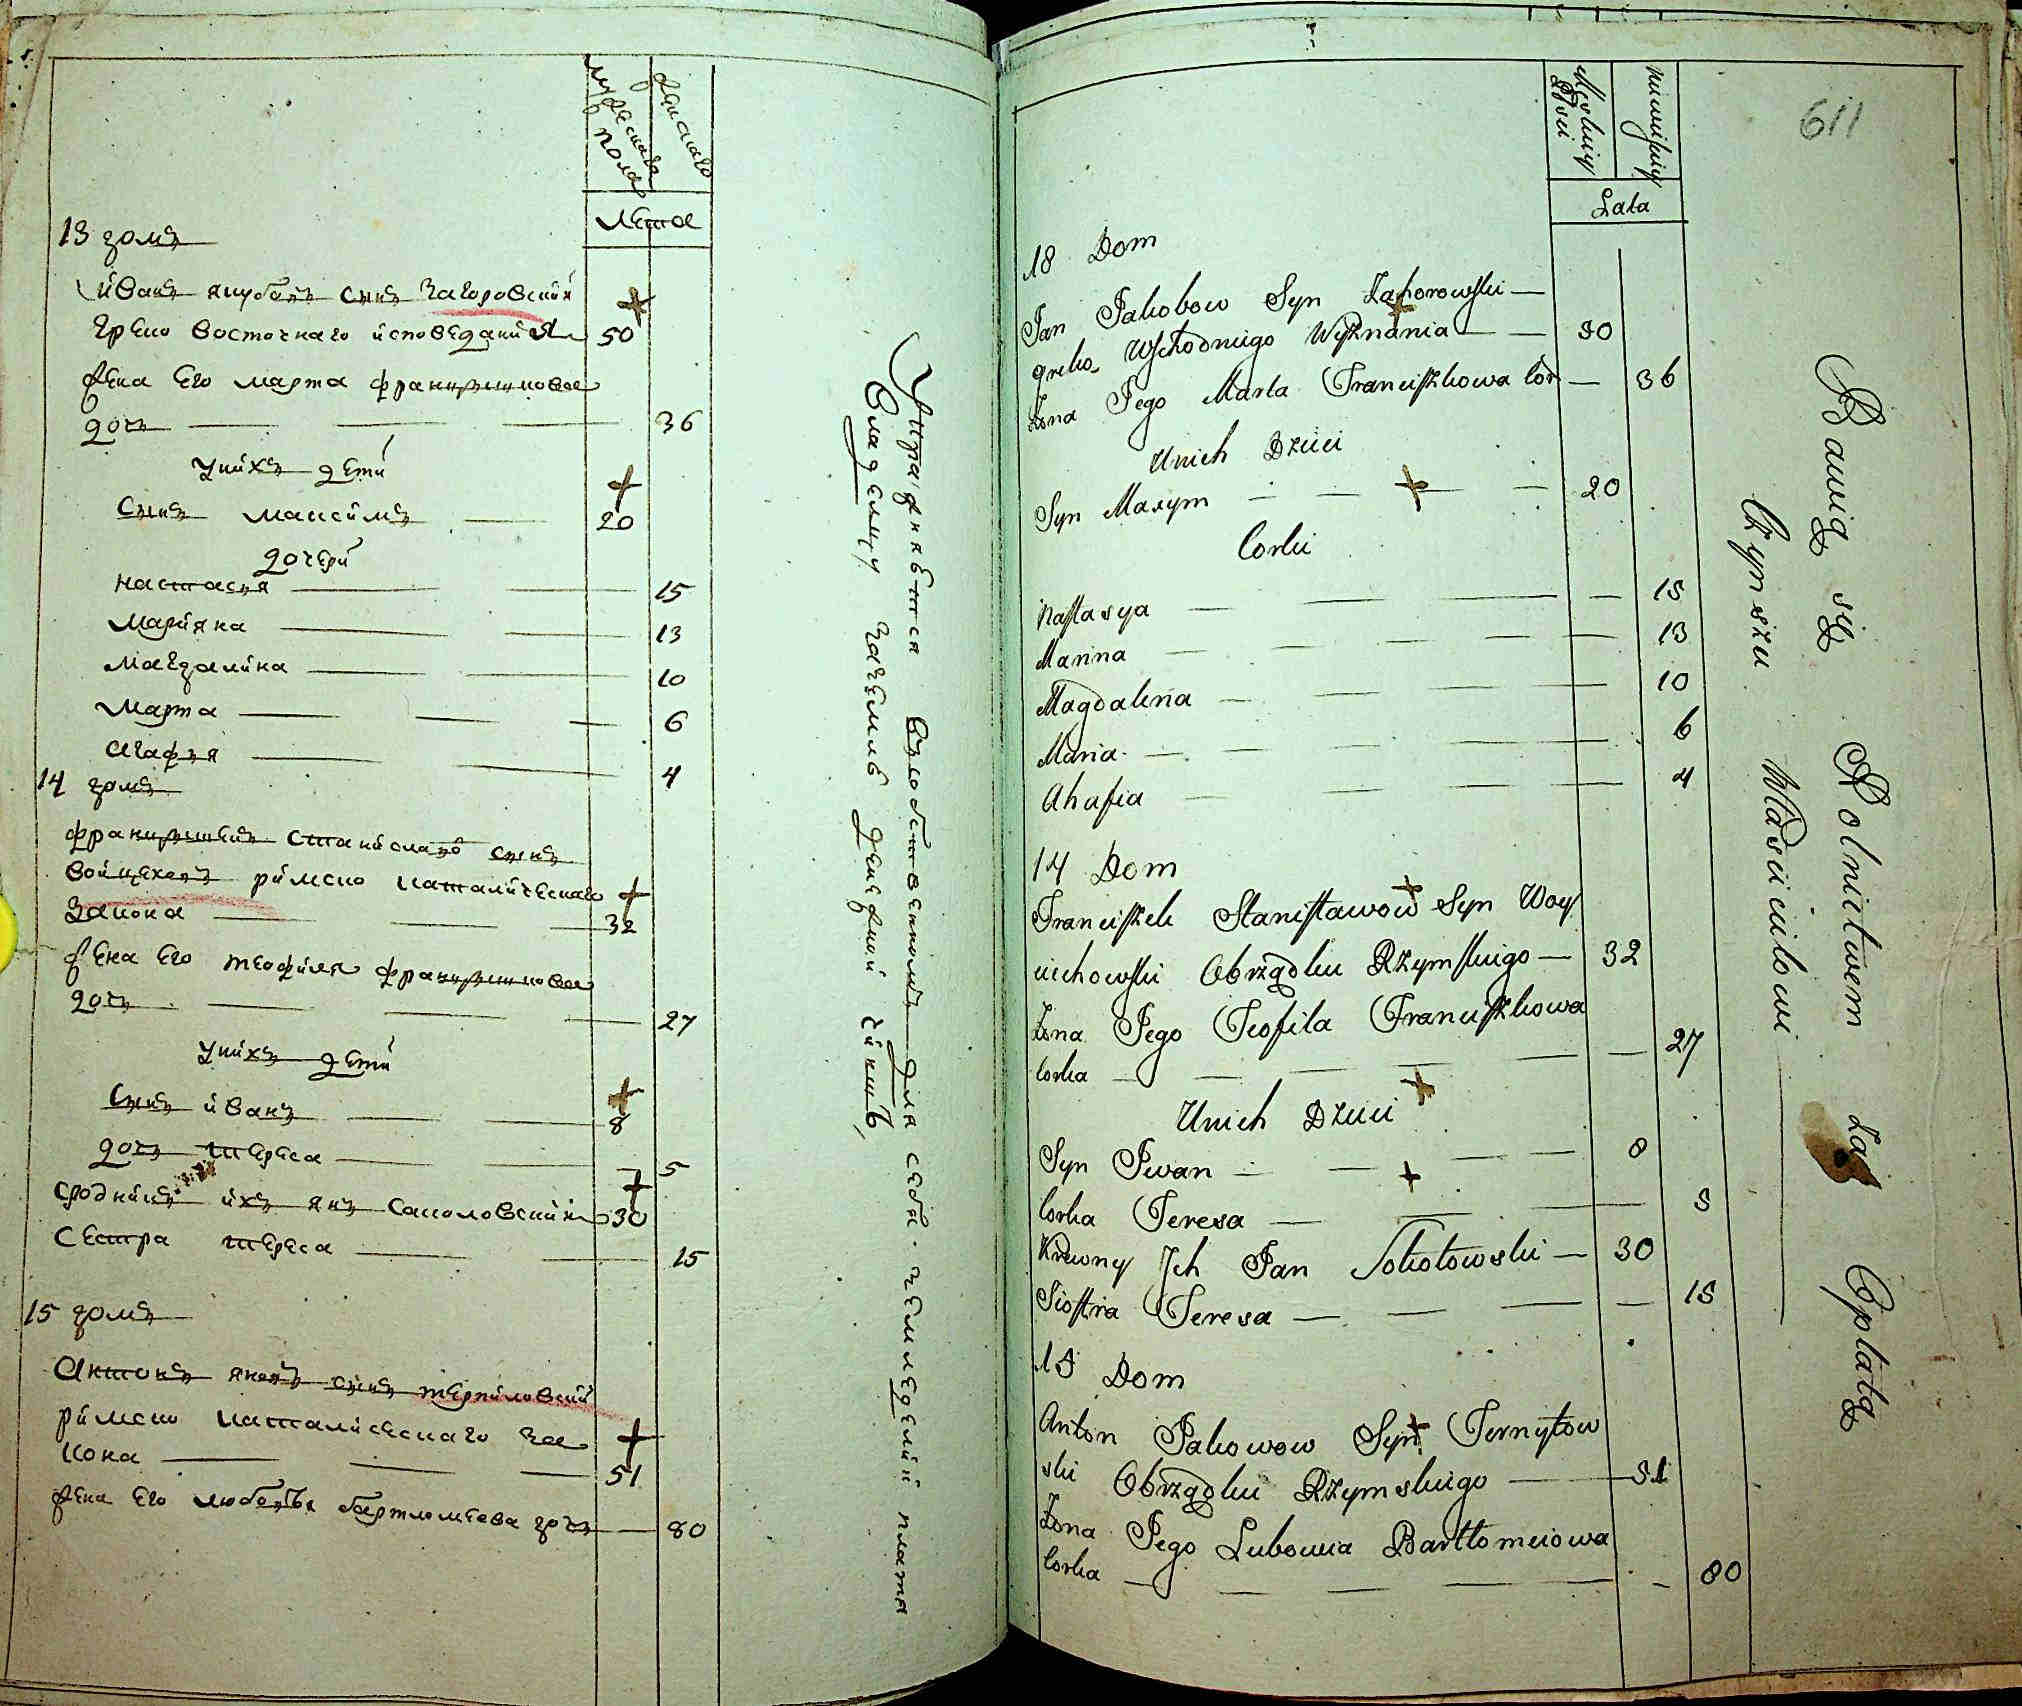 мужеска пола
женскаго
Лета
13 домъ
иванъ якубовъ сынъ Загоровский
Греко восточнаго исповедания 50
жена Его марта францишкова
дочь 36
униҳъ дети
сынъ максимъ 20
дочери
настасия 15
марияна 13
магдалина 10
марта 6
агафия 4
14 домъ
францишекъ станиславовъ сынъ
войцехов римско католическаго
Закона 32
жена Его теофиля францишкова
дочь 27
унихъ дети
сынъ иванъ 8
дочь тереса 5
сродникъ ихъ янъ саколовский 30
сестра тереса 15
15 домъ
Антонъ яковъ сынъ терниловский
римско католическаго за
кона 51
жена Его любовья бартломеева дочь 80
Упражняются
для себя. землѣделии плата
Владелцу за землѣ денежний чиншъ
611
Męskiey Płci
niewieściey
Lata
18 Dom
Jan Jakobow Syn Zahorowski
greko Wschodniego Wyznania 80
Żona Jego Marta Franciszkowa Cor 36
Unich Dzieci
Syn Maxym 20
Corki
Nastasya 15
Marina 13
Magdalena 10
Maria 6
Ahafia 4
14 Dom
Franciszek Stanisławow Syn Woy
ciechowski Obrządku Rzymskiego 32
Żona Jego Teofila Franciszkowa
Corka 27
Unich Dzieci
Syn Iwan 8
Corka Teresa 5
Krewny Ich Jan Sokołowski 30
Siostra Teresa 15
15 Dom
Anton Jakowow Syn Ternyłow
ski Obrządku Rzymskiego 51
Żona Jego Lubowia Bartłomeiowa
Corka 80
Bawią się Rolnictwem za Opłatą
Czynszu Właścicielowi